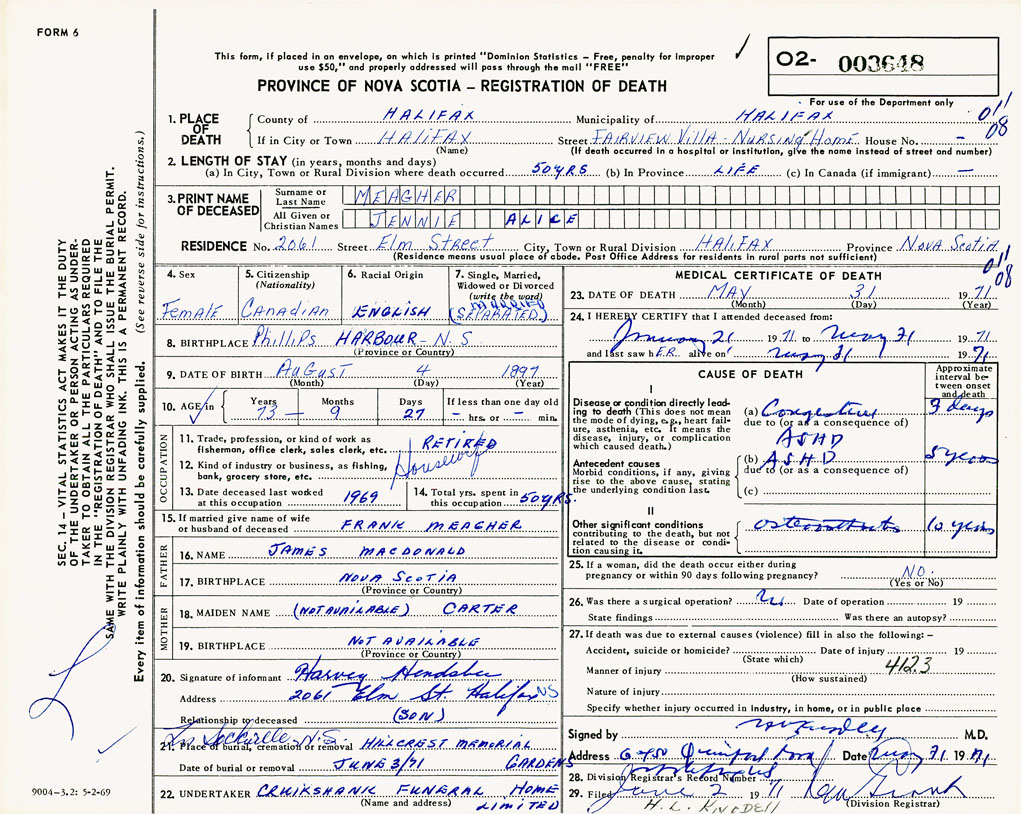 FORM 6
This form, if placed in an envelope, on which is printed "Dominion Statistics – Free, penalty for improper
use $50," and properly addressed will pass through the mail "FREE"
O2- 003648
PROVINCE OF NOVA SCOTIA – REGISTRATION OF DEATH
For use of the Department only
011
08
1. PLACE OF DEATH
County of HALIFAX Municipality of HALIFAX
If in City or Town HALIFAX Street FAIRVIEW VILLA - NURSING HOME House No. –
(Name) (If death occurred in a hospital or institution, give the name instead of street and number)
2. LENGTH OF STAY (in years, months and days)
(a) In City, Town or Rural Division where death occurred 50 YRS (b) In Province LIFE (c) In Canada (if immigrant) –
3. PRINT NAME OF DECEASED
Surname or Last Name MEAGHER
All Given or Christian Names JENNIE ALICE
RESIDENCE No. 2061 Street Elm Street City, Town or Rural Division HALIFAX Province NOVA SCOTIA
(Residence means usual place of abode. Post Office Address for residents in rural parts not sufficient)
011
08
4. Sex
Female
5. Citizenship
(Nationality)
Canadian
6. Racial Origin
ENGLISH
7. Single, Married,
Widowed or Divorced
(write the word)
MARRIED
(SEPARATED)
8. BIRTHPLACE Phillips HARBOUR - N.S.
(Province or Country)
9. DATE OF BIRTH AUGUST 4 1897
(Month) (Day) (Year)
10. AGE in
Years 73 – Months 9 Days 27
If less than one day old
– hrs. or – min.
OCCUPATION
11. Trade, profession, or kind of work as
fisherman, office clerk, sales clerk, etc. RETIRED
12. Kind of industry or business, as fishing,
bank, grocery store, etc. Housewife
13. Date deceased last worked
at this occupation 1969
14. Total yrs. spent in
this occupation 50 YRS.
15. If married give name of wife
or husband of deceased FRANK MEAGHER
FATHER
16. NAME JAMES MACDONALD
17. BIRTHPLACE NOVA SCOTIA
(Province or Country)
MOTHER
18. MAIDEN NAME (NOT AVAILABLE) CARTER
19. BIRTHPLACE NOT AVAILABLE
(Province or Country)
20. Signature of informant Harvey Hendsbee
Address 2061 Elm St. Halifax NS
Relationship to deceased (SON)
Sackville N.S.
21. Place of burial, cremation or removal HILLCREST MEMORIAL
GARDENS
Date of burial or removal JUNE 3/71
22. UNDERTAKER CRUIKSHANK FUNERAL HOME
LIMITED
(Name and address)
MEDICAL CERTIFICATE OF DEATH
23. DATE OF DEATH MAY 31 1971
(Month) (Day) (Year)
24. I HEREBY CERTIFY that I attended deceased from:
January 21 1971 to May 31 1971
and last saw hER alive on May 31 1971
CAUSE OF DEATH
Approximate
interval be-
tween onset
and death
I
Disease or condition directly lead-
ing to death (This does not mean
the mode of dying, e.g., heart fail-
ure, asthenia, etc. It means the
disease, injury, or complication
which caused death.)
(a) Congestive 3 days
due to (or as a consequence of)
ASHD
Antecedent causes
Morbid conditions, if any, giving
rise to the above cause, stating
the underlying condition last.
(b) ASHD 5 years
due to (or as a consequence of)
(c)
II
Other significant conditions
contributing to the death, but not
related to the disease or condi-
tion causing it.
osteoarthritis 10 years
25. If a woman, did the death occur either during
pregnancy or within 90 days following pregnancy? NO.
(Yes or No)
26. Was there a surgical operation? Date of operation 19
State findings Was there an autopsy?
27. If death was due to external causes (violence) fill in also the following: –
Accident, suicide or homicide? Date of injury 19
(State which)
Manner of injury 4123
(How sustained)
Nature of injury
Specify whether injury occurred in industry, in home, or in public place
Signed by M.D.
Address Date May 31 1971
28. Division Registrar's Record Number
29. Filed June 2 1971
(Division Registrar)
SEC. 14 – VITAL STATISTICS ACT MAKES IT THE DUTY
OF THE UNDERTAKER OR PERSON ACTING AS UNDER-
TAKER TO OBTAIN ALL THE PARTICULARS REQUIRED
IN THE "REGISTRATION OF DEATH" AND TO FILE THE
SAME WITH THE DIVISION REGISTRAR WHO SHALL ISSUE THE BURIAL PERMIT.
WRITE PLAINLY WITH UNFADING INK. THIS IS A PERMANENT RECORD.
Every item of information should be carefully supplied. (See reverse side for instructions.)
9004-3.2: 5-2-69